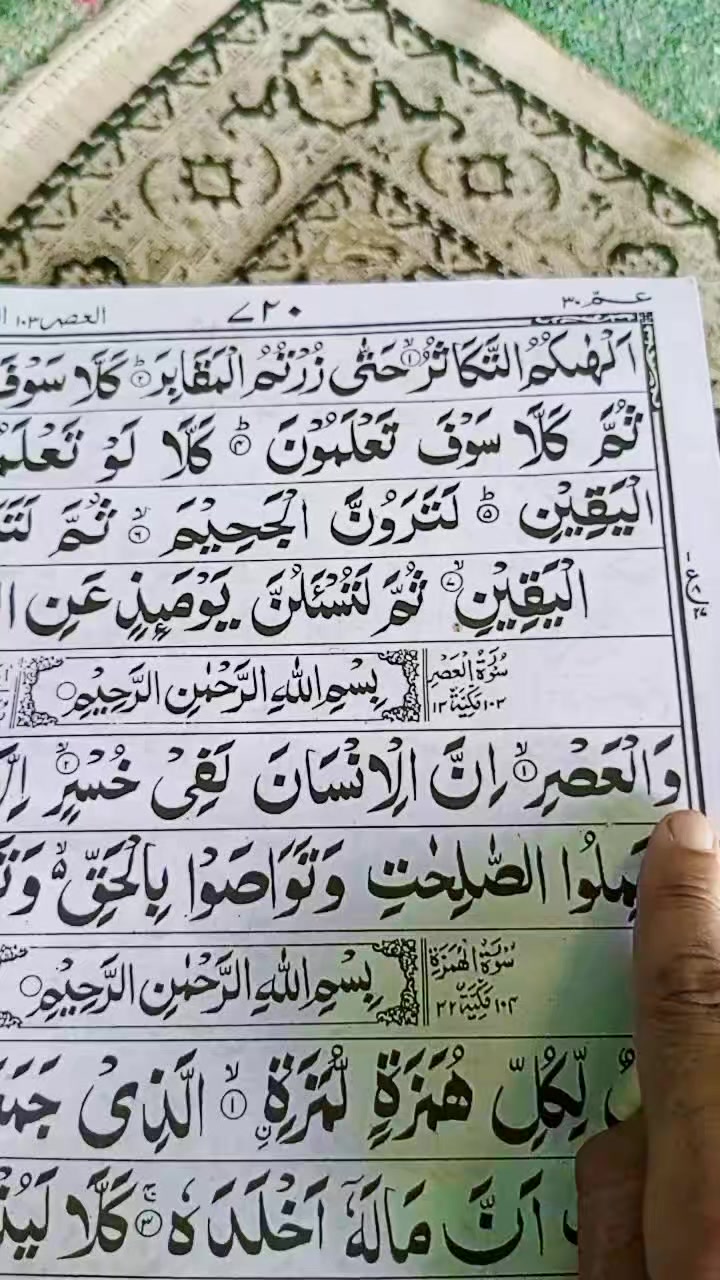 عـمّ ٣٠ ٧٢٠ العصر ١٠٣
اَلْهٰىكُمُ التَّكَاثُرُ ۙ﴿۱﴾ حَتّٰى زُرْتُمُ الْمَقَابِرَ ؕ﴿۲﴾ كَلَّا سَوْفَ
ثُمَّ كَلَّا سَوْفَ تَعْلَمُوْنَ ؕ﴿۴﴾ كَلَّا لَوْ
الْيَقِيْنِ ؕ﴿۵﴾ لَتَرَوُنَّ الْجَحِيْمَ ۙ﴿۶﴾ ثُمَّ
الْيَقِيْنِ ۙ﴿۷﴾ ثُمَّ لَتُسْـَٔلُنَّ يَوْمَىِٕذٍ عَنِ
سُوْرَةُ الْعَصْرِ
١٠٣ مَكِّيَّةٌ ١٣
بِسْمِ اللّٰهِ الرَّحْمٰنِ الرَّحِيْمِ
وَالْعَصْرِ ۙ﴿۱﴾ اِنَّ الْاِنْسَانَ لَفِىْ خُسْرٍ ۙ﴿۲﴾
الصّٰلِحٰتِ وَتَوَاصَوْا بِالْحَقِّ ۙ۬
سُوْرَةُ الْهُمَزَةِ
١٠٤ مَكِّيَّةٌ ٣٢
بِسْمِ اللّٰهِ الرَّحْمٰنِ الرَّحِيْمِ
لِّكُلِّ هُمَزَةٍ لُّمَزَةِ ۙ﴿۱﴾ اۨلَّذِىْ
اَنَّ مَالَهٗۤ اَخْلَدَهٗ ۚ﴿۳﴾ كَلَّا